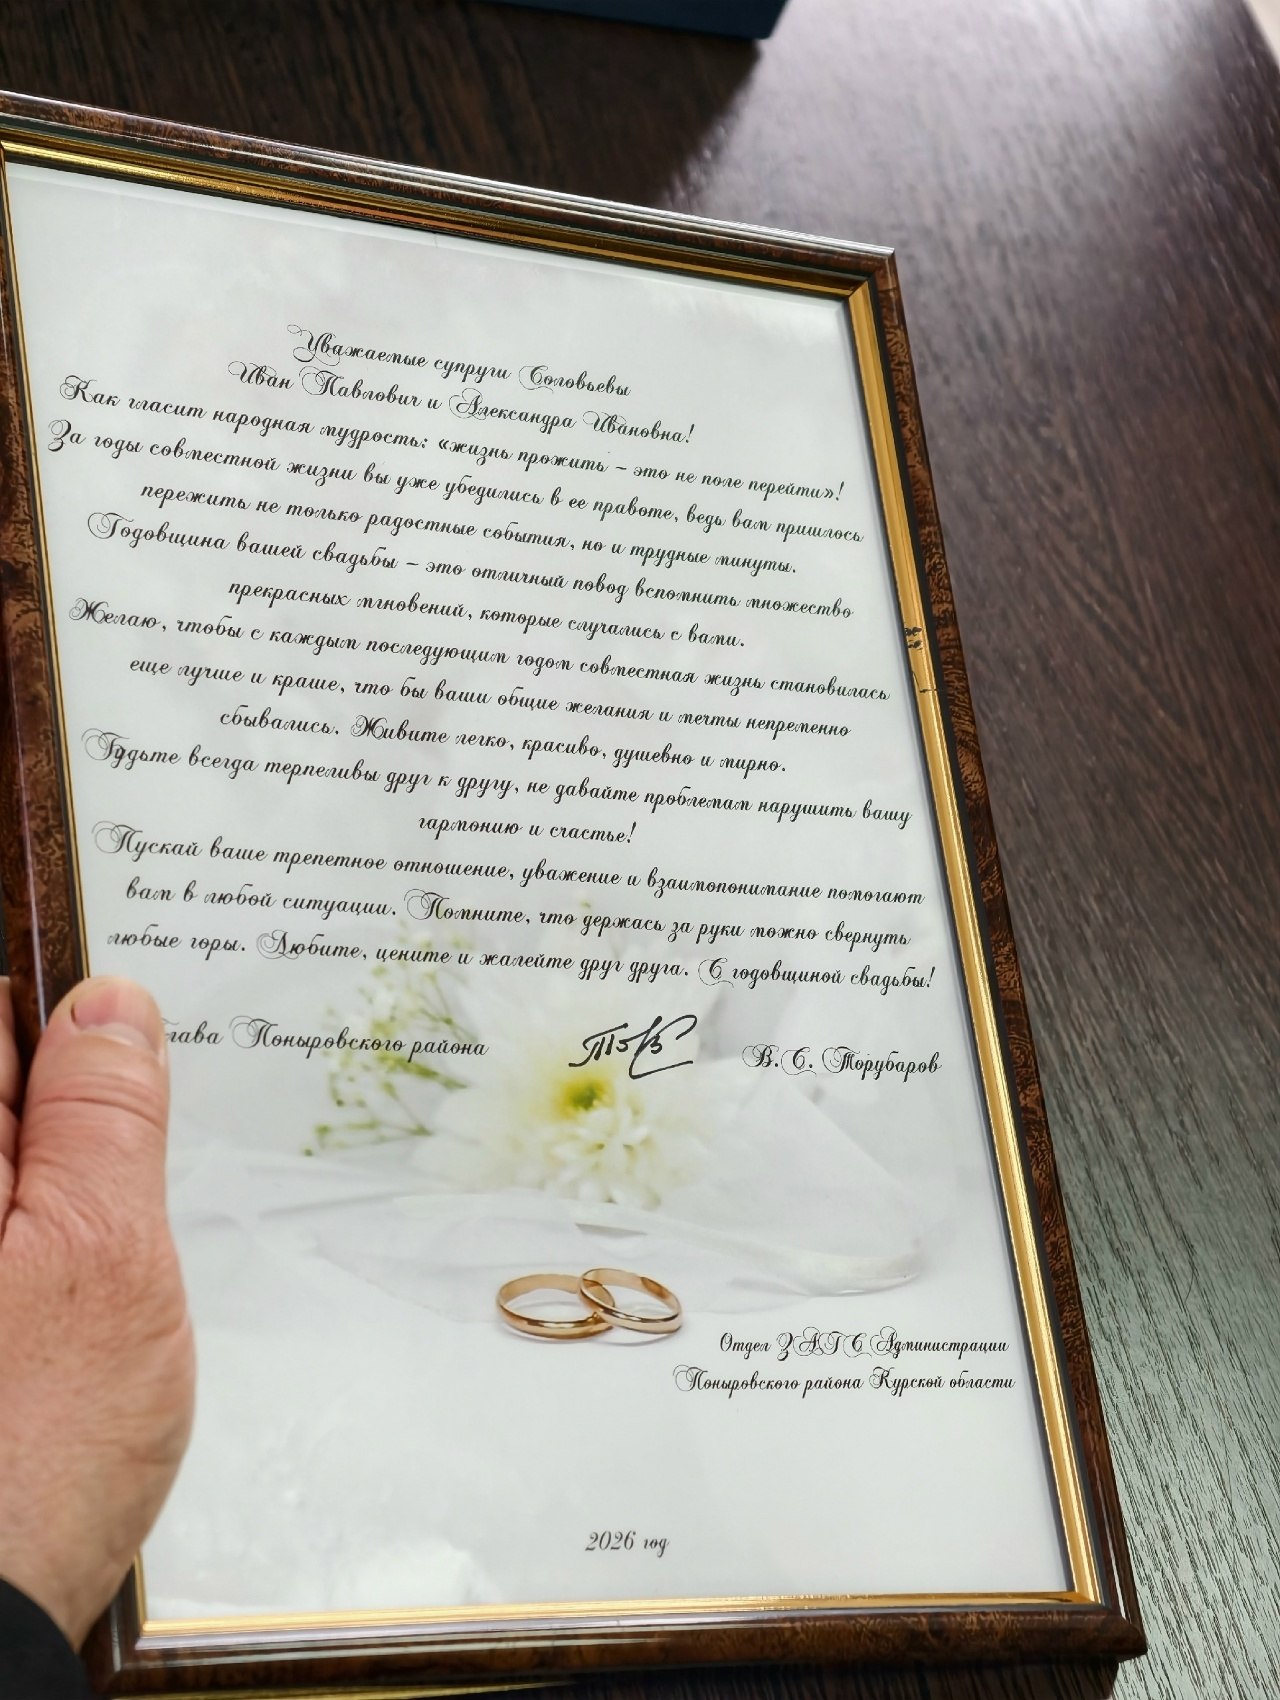 Уважаемые супруги Соловьевы
Иван Павлович и Александра Ивановна!
Как гласит народная мудрость: «жизнь прожить – это не поле перейти»!
За годы совместной жизни вы уже убедились в ее правоте, ведь вам пришлось
пережить не только радостные события, но и трудные минуты.
Годовщина вашей свадьбы – это отличный повод вспомнить множество
прекрасных мгновений, которые случались с вами.
Желаю, чтобы с каждым последующим годом совместная жизнь становилась
еще лучше и краше, что бы ваши общие желания и мечты непременно
сбывались. Живите легко, красиво, душевно и мирно.
Будьте всегда терпеливы друг к другу, не давайте проблемам нарушить вашу
гармонию и счастье!
Пускай ваше трепетное отношение, уважение и взаимопонимание помогают
вам в любой ситуации. Помните, что держась за руки можно свернуть
любые горы. Любите, цените и жалейте друг друга. С годовщиной свадьбы!
лава Поныровского района В.С. Торубаров
Отдел ЗАГС Администрации
Поныровского района Курской области
2026 год